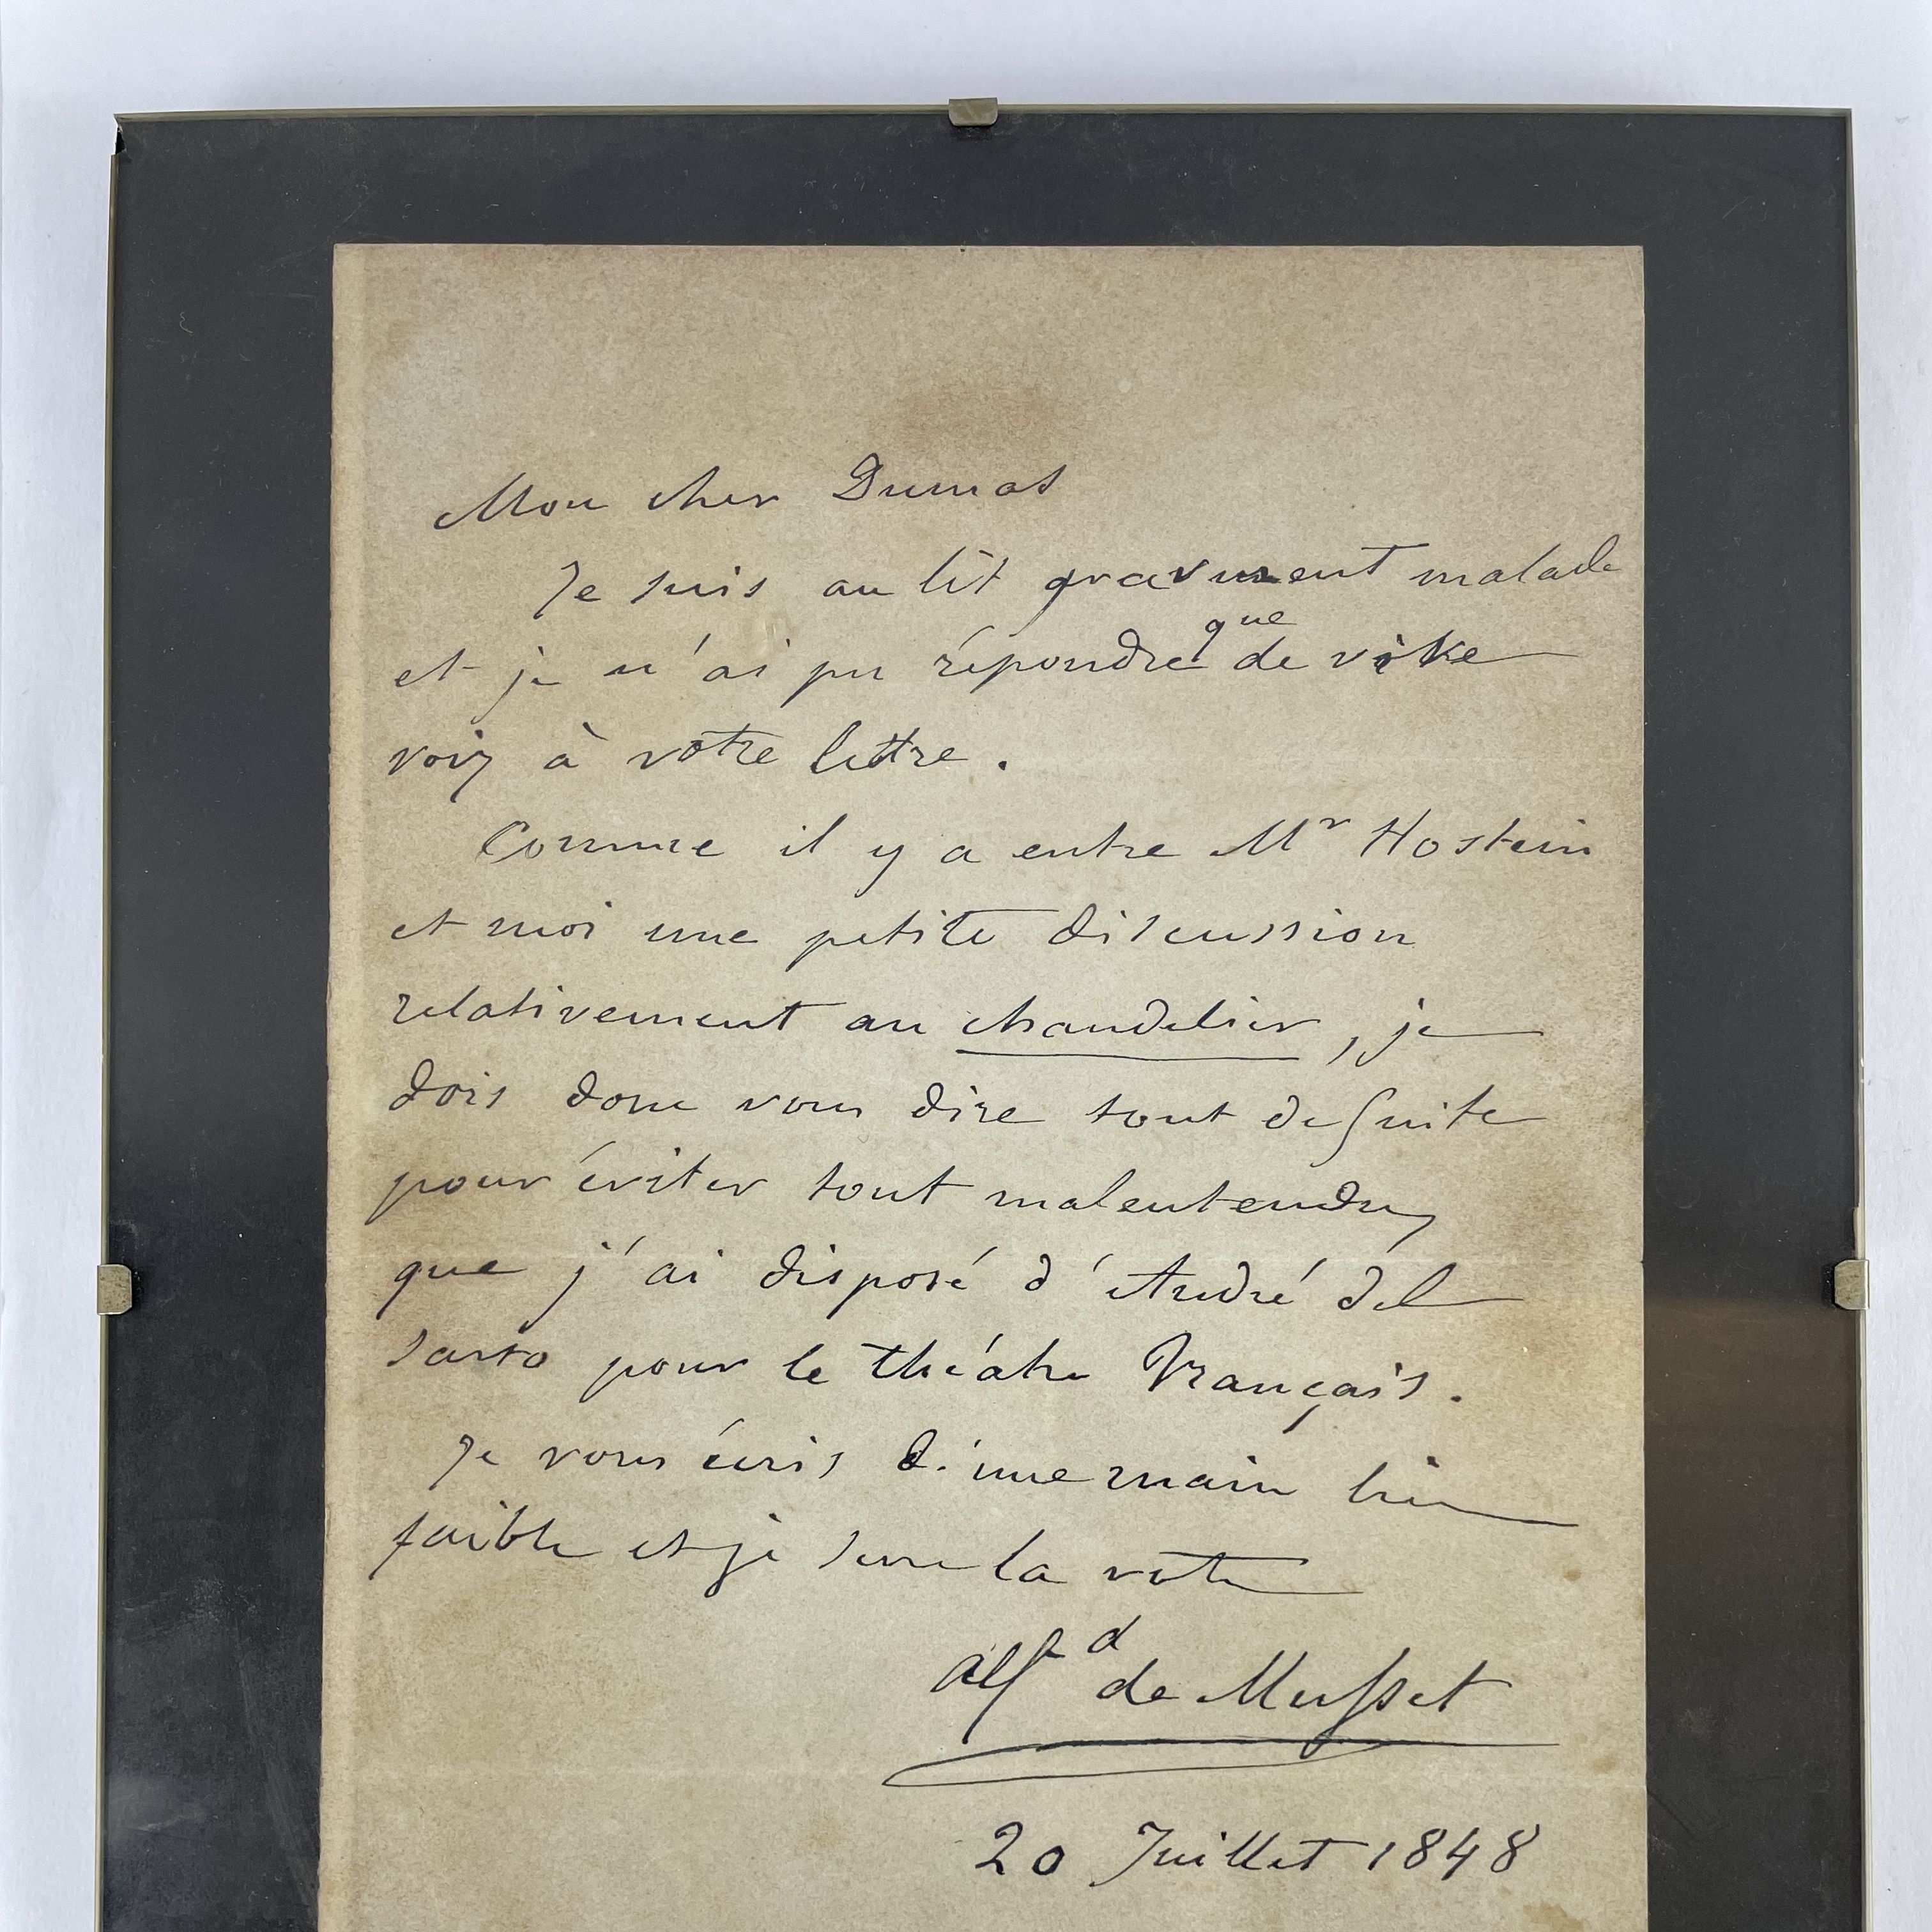 Mon cher Dumas
Je suis au lit gravement malade
et je n'ai pu répondre que de vive
voix à votre lettre.
Comme il y a entre Mr Hostein
et moi une petite discussion
relativement au chandelier, je
dois donc vous dire tout de suite
pour éviter tout malentendu,
que j'ai disposé d'André del
sarto pour le théatre Français.
Je vous écris d'une main bien
faible et je serre la votre
Alfd de Musset
20 Juillet 1848